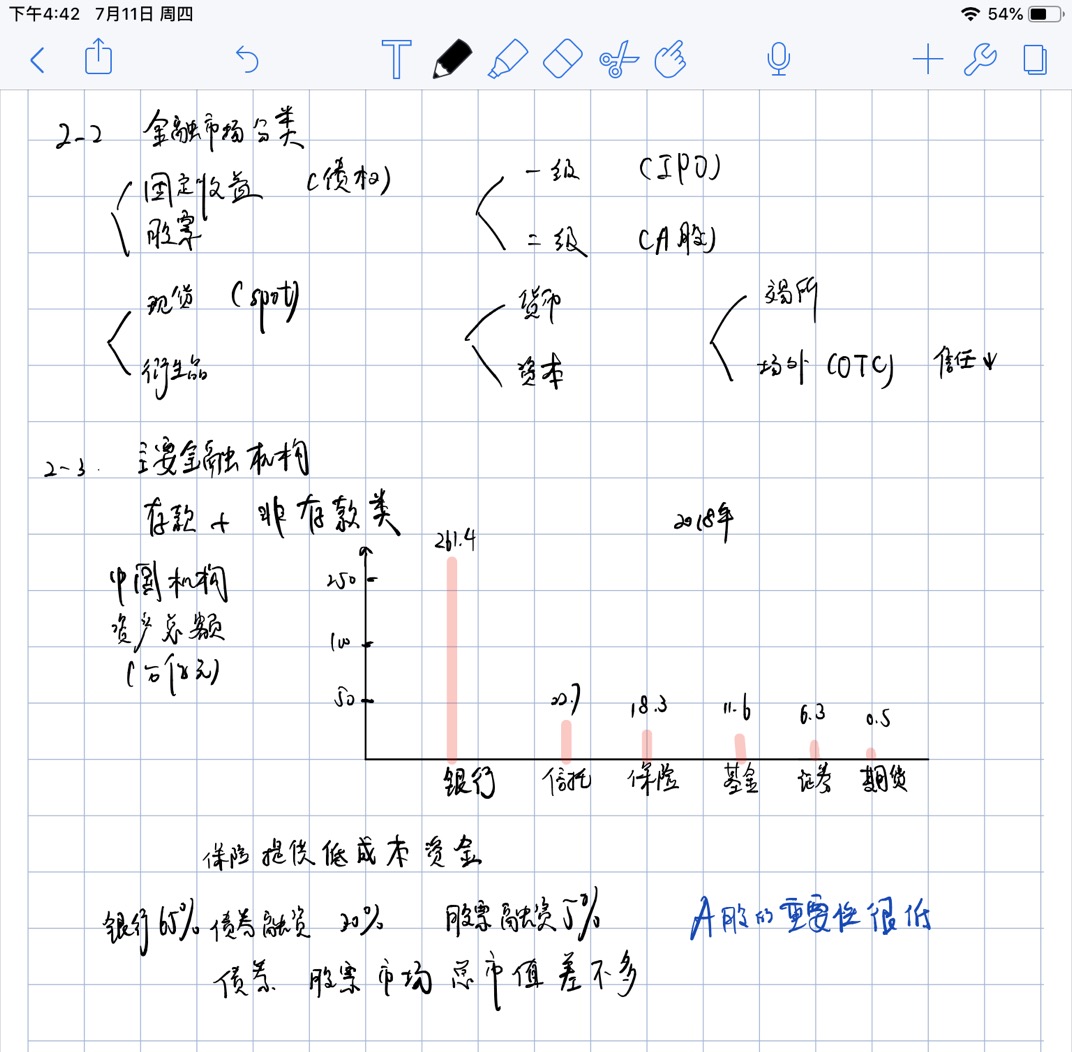 下午4:42 7月11日 周四 54%
T
2-2 金融市场分类
固定收益 (债权) 一级 (IPO)
股票 二级 (A股)
现货 (spot) 货币 交易所
衍生品 资本 场外 (OTC) 信任↓
2-3. 主要金融机构
存款 + 非存款类
2018年
中国机构
资产总额
(万亿元)
250
100
50
261.4 22.7 18.3 11.6 6.3 0.5
银行 信托 保险 基金 证券 期货
保险提供低成本资金
银行65% 债券融资 30% 股票融资5% A股的重要性很低
债券 股票市场 总市值差不多